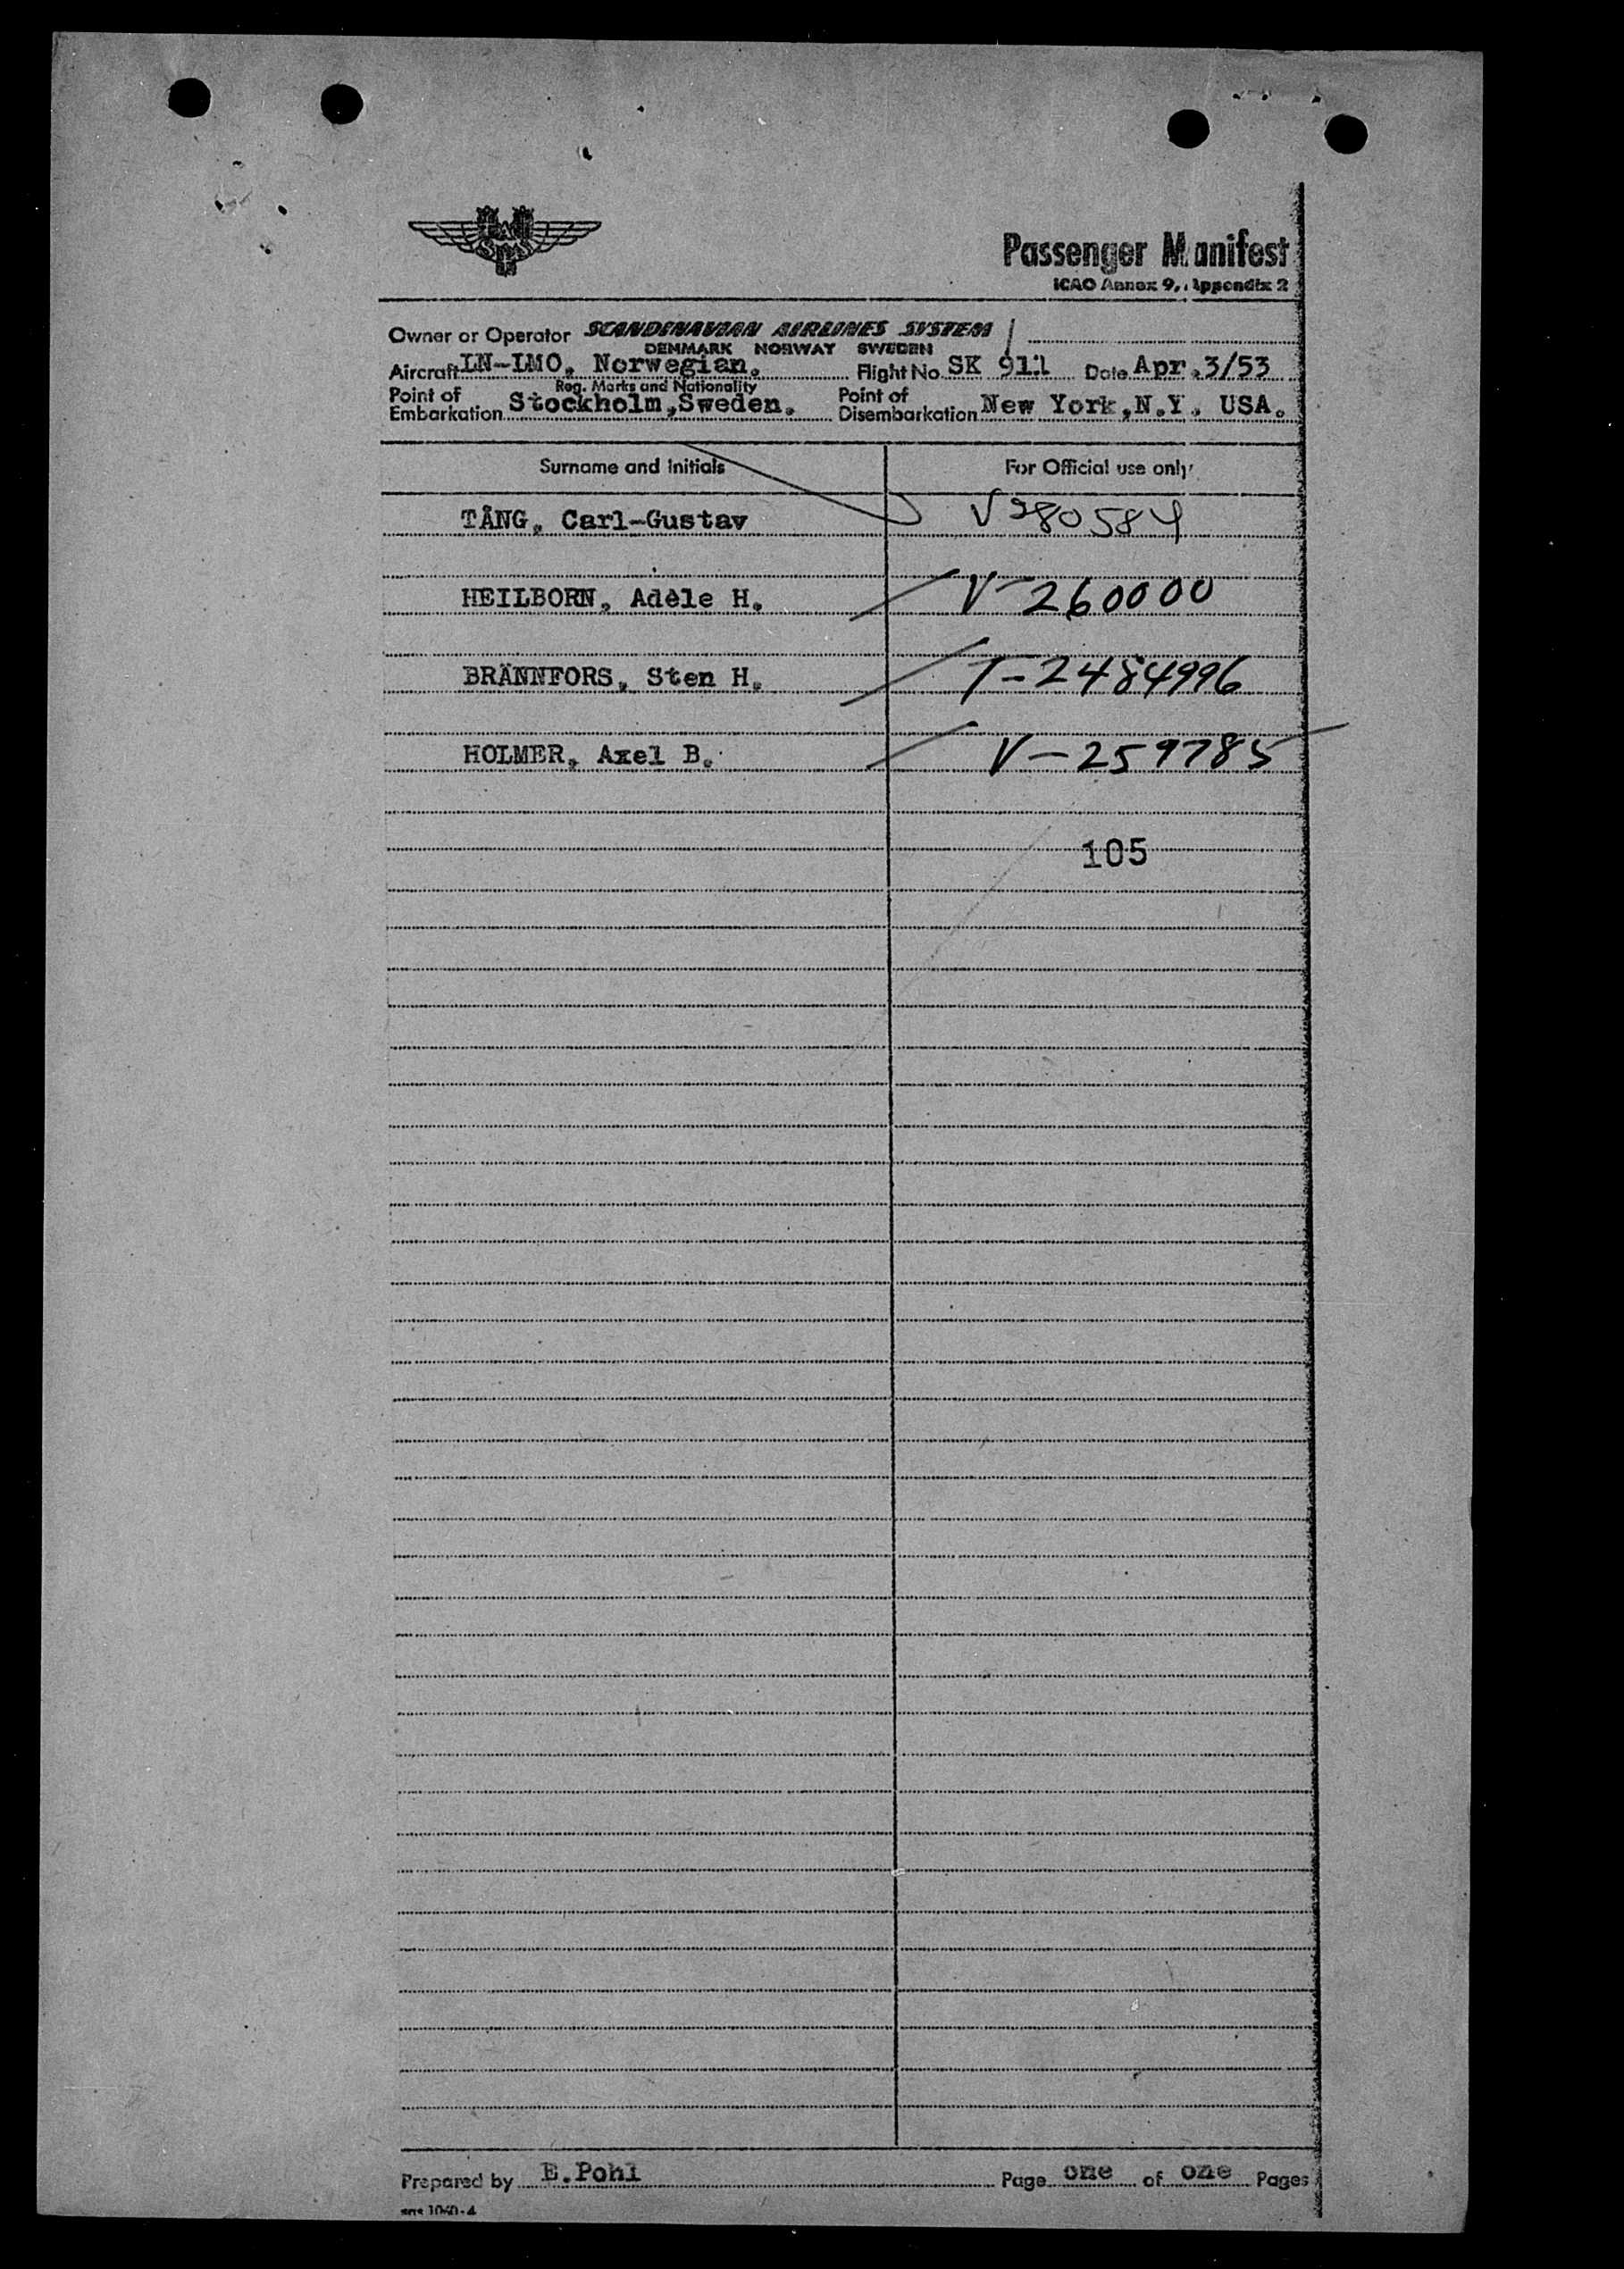 SAS
Passenger Manifest
ICAO Annex 9, Appendix 2
Owner or Operator SCANDINAVIAN AIRLINES SYSTEM
DENMARK NORWAY SWEDEN
Aircraft LN-LMO, Norwegian. Flight No. SK 911 Date Apr.3/53
Reg. Marks and Nationality
Point of Embarkation Stockholm,Sweden. Point of Disembarkation New York,N.Y. USA.
Surname and Initials For Official use only
TÅNG, Carl-Gustav V 280584
HEILBORN, Adèle H. V-260000
BRÄNNFORS, Sten H. T-2484996
HOLMER, Axel B. V-259785
105
Prepared by E.Pohl Page one of one Pages